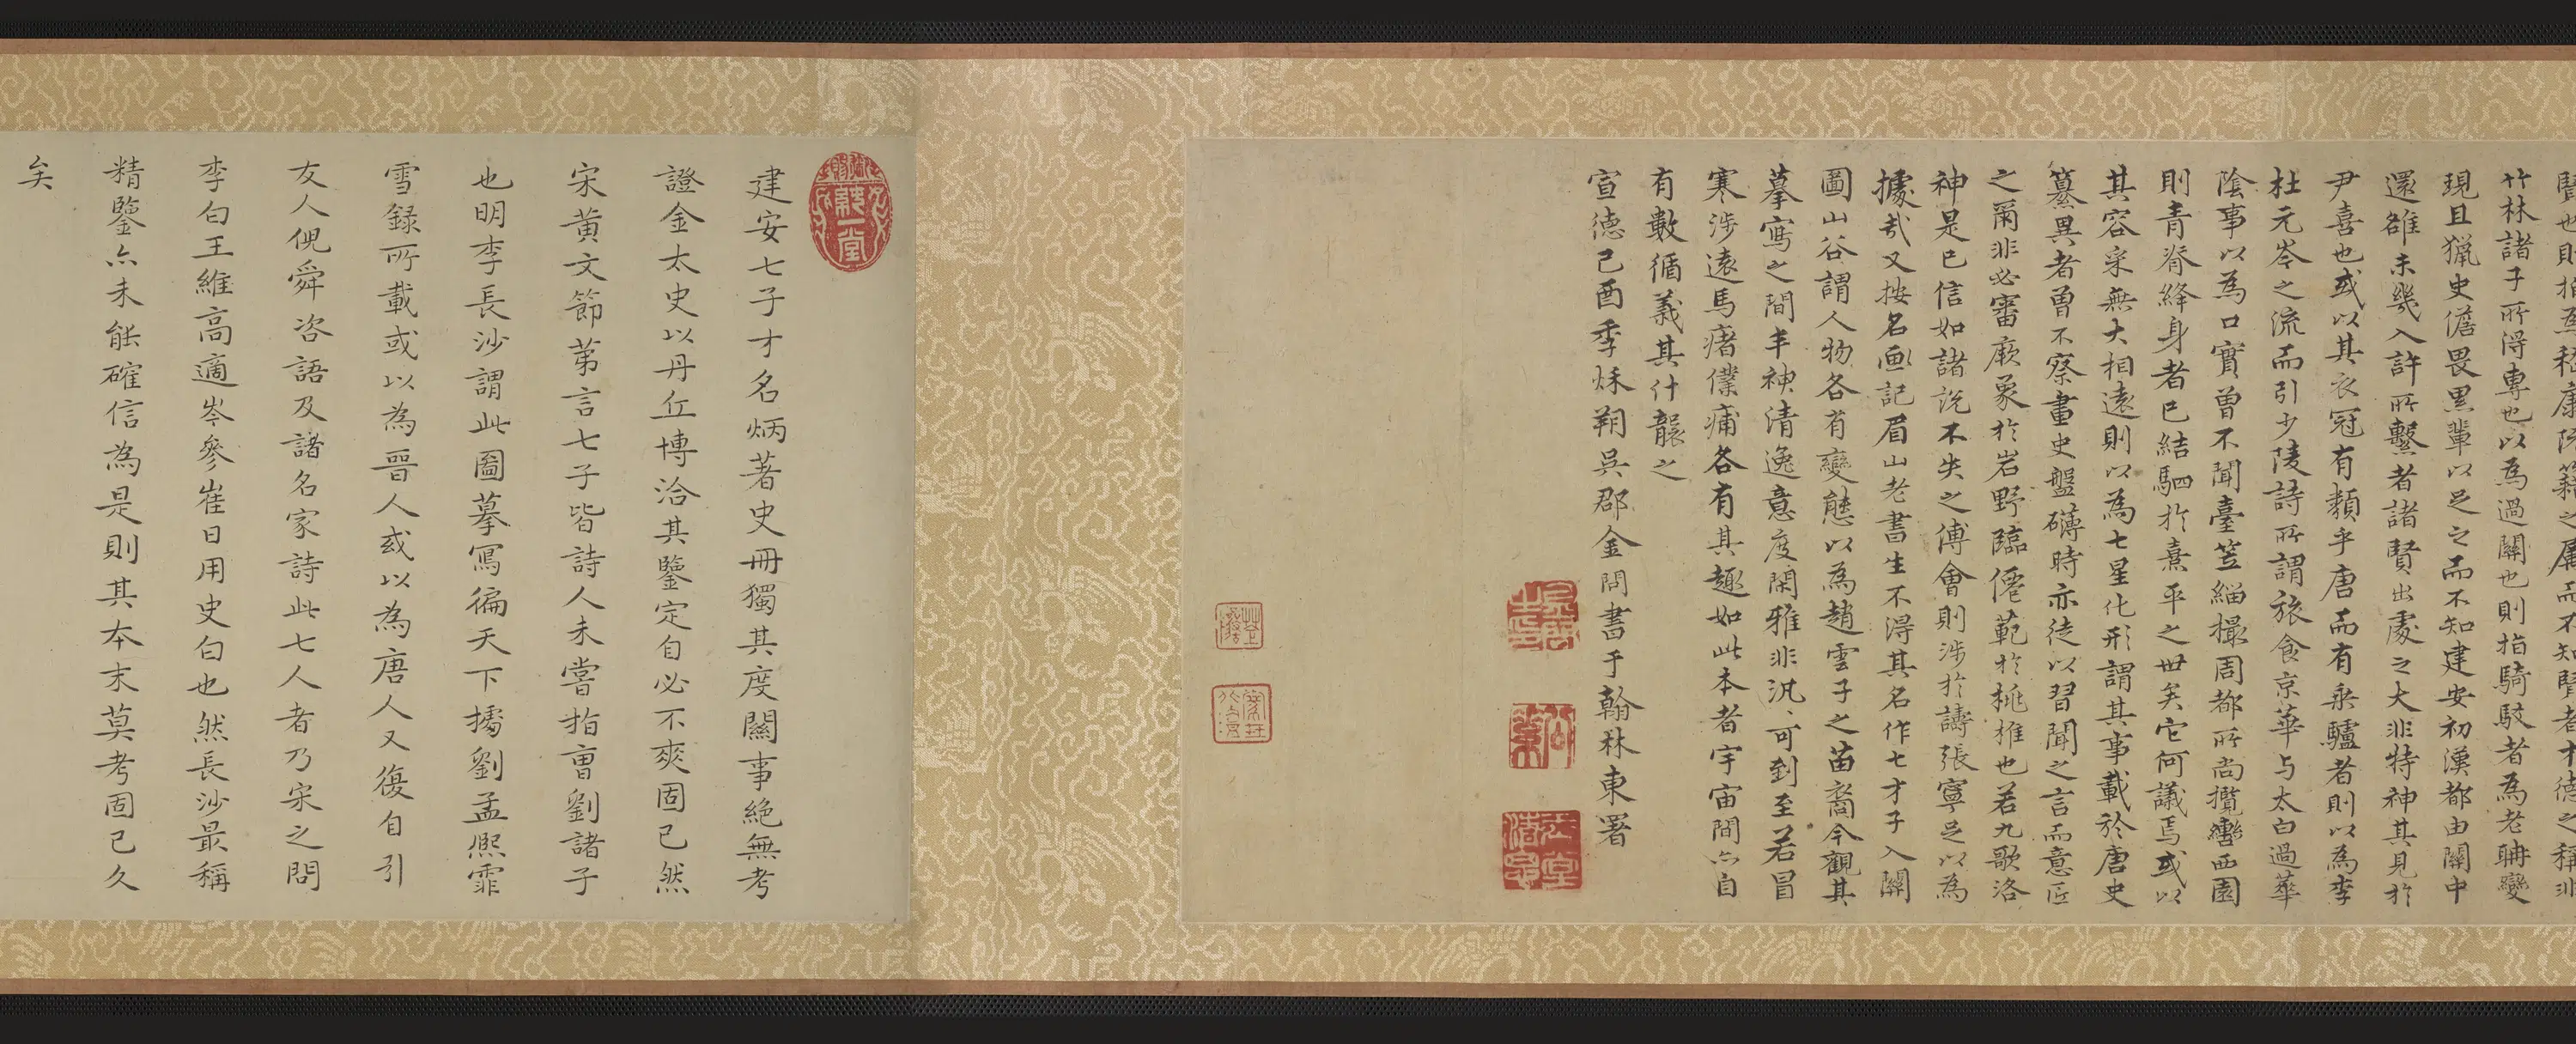 賢也則指為嵇康阮籍之屬而不知賢者才德之稱非
竹林諸子所得專也以為過關也則指騎駁者為老聃變
現且獵史儋畏黑輩以足之而不知建安初漢都由關中
還雒未幾入許所繫者諸賢出處之大非特神其見於
尹喜也或以其衣冠有類乎唐而有乘驢者則以為李
杜元岑之流而引少陵詩所謂旅食京華与太白過華
陰事以為口實曾不聞臺笠緇撮周都所尚攬轡西園
則青脊絳身者已結駟於熹平之世矣它何議焉或以
其容采無大相遠則以為七星化形謂其事載於唐史
纂異者曾不察畫史盤礴時亦徒以習聞之言而意匠
之爾非必審厥象於岩野臨僊範於桃椎也若九歌洛
神是已信如諸説不失之傅會則涉於譸張寧足以為
據㢤又按名画記眉山老書生不得其名作七才子入關
圖山谷謂人物各有變態以為趙雲子之苗裔今觀其
摹寫之間丰神清逸意度閑雅非汎可到至若冒
寒涉遠馬瘏僕痡各有其趣如此本者宇宙間亦自
有數循義其什襲之
宣德己酉季秋朔吳郡金問書于翰林東署
建安七子才名炳著史冊獨其度關事絶無考
證金太史以丹丘博洽其鑒定自必不爽固已然
宋黃文節苐言七子皆詩人未嘗指曹劉諸子
也明李長沙謂此圖摹寫徧天下據劉孟熙霏
雪録所載或以為晉人或以為唐人又復自引
友人倪舜咨語及諸名家詩此七人者乃宋之問
李白王維高適岑參崔日用史白也然長沙最稱
精鑒亦未能確信為是則其本末莫考固已久
矣